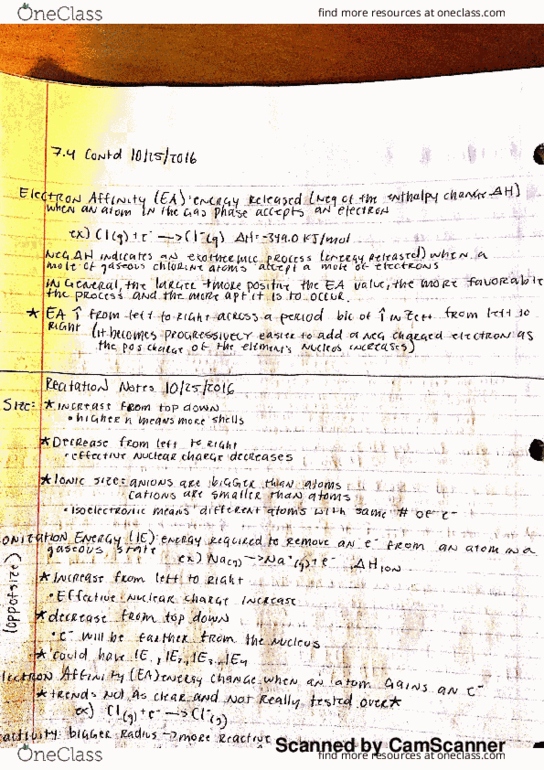 OneClass
find more resources at oneclass.com
7.4 Contd 10/25/2016
Electron Affinity (EA): energy released (neg of the enthalpy change ΔH)
when an atom in the gas phase accepts an electron
ex) Cl(g) + e⁻ → Cl⁻(g) ΔH = -349.0 KJ/mol
Neg ΔH indicates an exothermic process (energy released) when a
mole of gaseous chlorine atoms accept a mole of electrons
In general, the larger + more positive the EA value, the more favorable
the process and the more apt it is to occur.
* EA ↑ from left to right across a period b/c of ↑ in Zeff from left to
right (it becomes progressively easier to add a neg charged electron as
the pos charge of the element's nucleus increases)
Recitation Notes 10/25/2016
Size: * increase from top down
• higher n means more shells
* Decrease from left to right
• effective nuclear charge decreases
* Ionic size: anions are bigger than atoms
cations are smaller than atoms
• isoelectronic means different atoms with same # of e⁻
onization Energy (IE) energy required to remove an e⁻ from an atom in a
gaseous state ex) Na(g) → Na⁺(g) + e⁻ ΔH ION
(opp of size)
* Increase from left to right
• Effective nuclear charge increase
* decrease from top down
• e⁻ will be farther from the nucleus
* could have IE₁, IE₂, IE₃, IE₄
lectron Affinity (EA) energy change when an atom gains an e⁻
* trends not as clear and not really tested over *
ex) Cl(g) + e⁻ → Cl⁻(g)
activity: bigger radius → more reactive
Scanned by CamScanner
OneClass
find more resources at oneclass.com